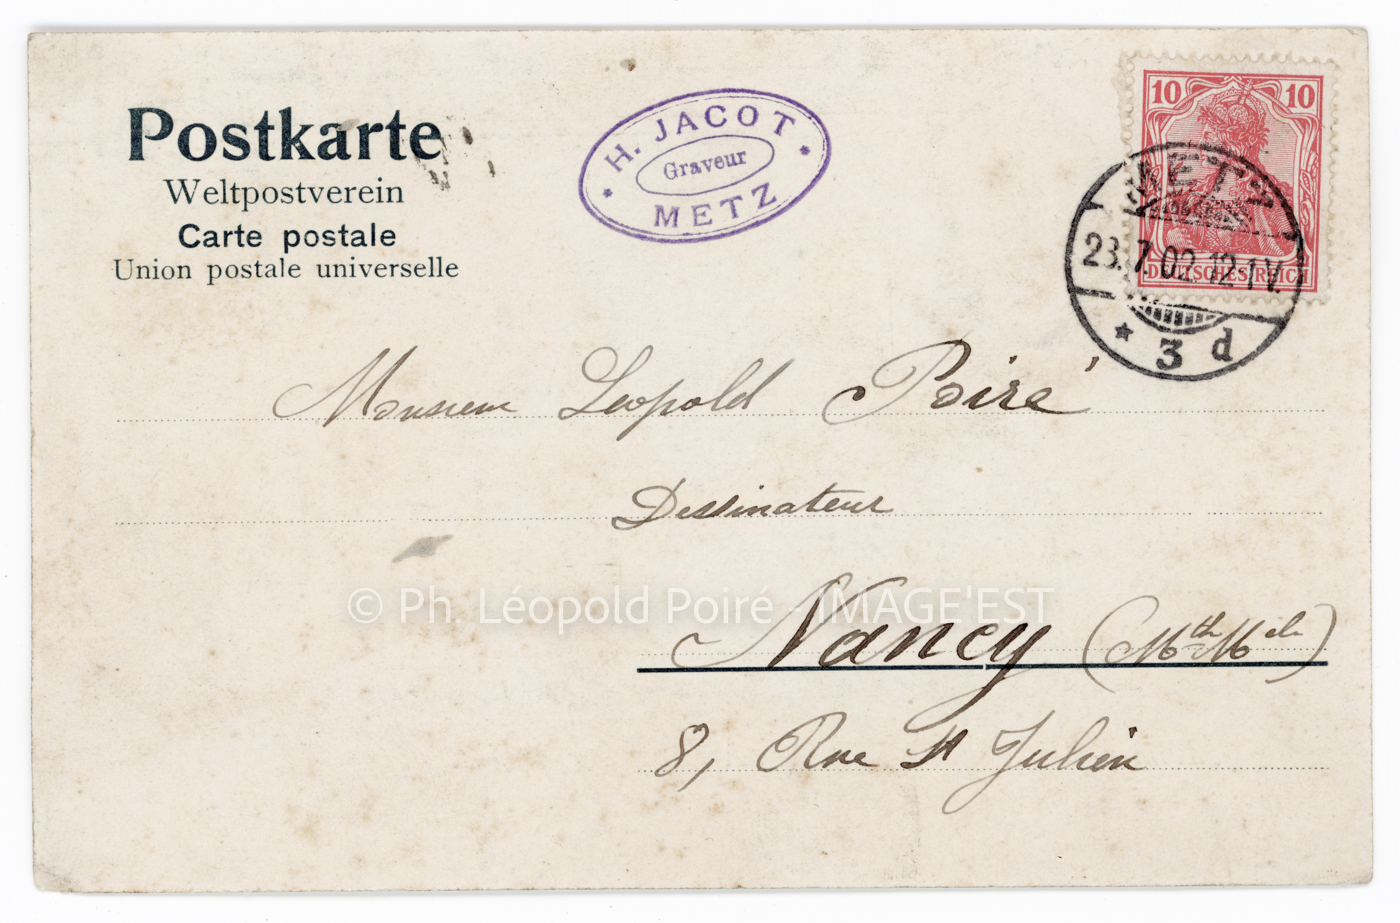 Postkarte
Weltpostverein
Carte postale
Union postale universelle
* H. JACOT *
Graveur
METZ
10 10
DEUTSCHES REICH
METZ
23.7.02.12-1V.
* 3 d
Monsieur Leopold Poiré
Dessinateur
© Ph. Léopold Poiré - IMAGE'EST
Nancy (Mthe Mlle)
8, Rue St Julien